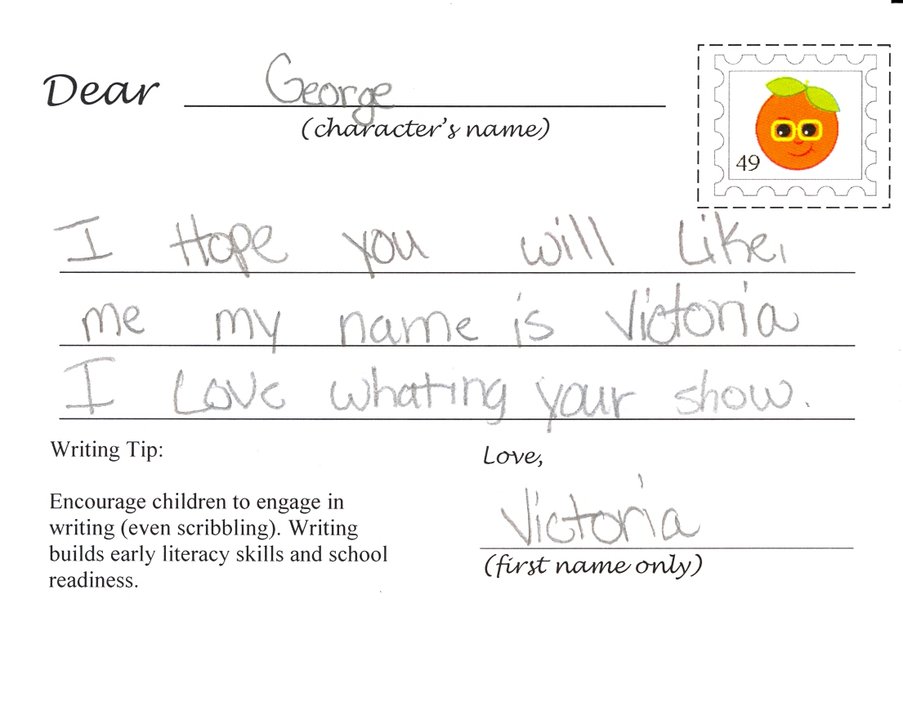 Dear George
(character's name)
49
I Hope you will like,
me my name is Victoria
I Love whating your show.
Writing Tip:
Love,
Encourage children to engage in
writing (even scribbling). Writing
builds early literacy skills and school
readiness.
Victoria
(first name only)